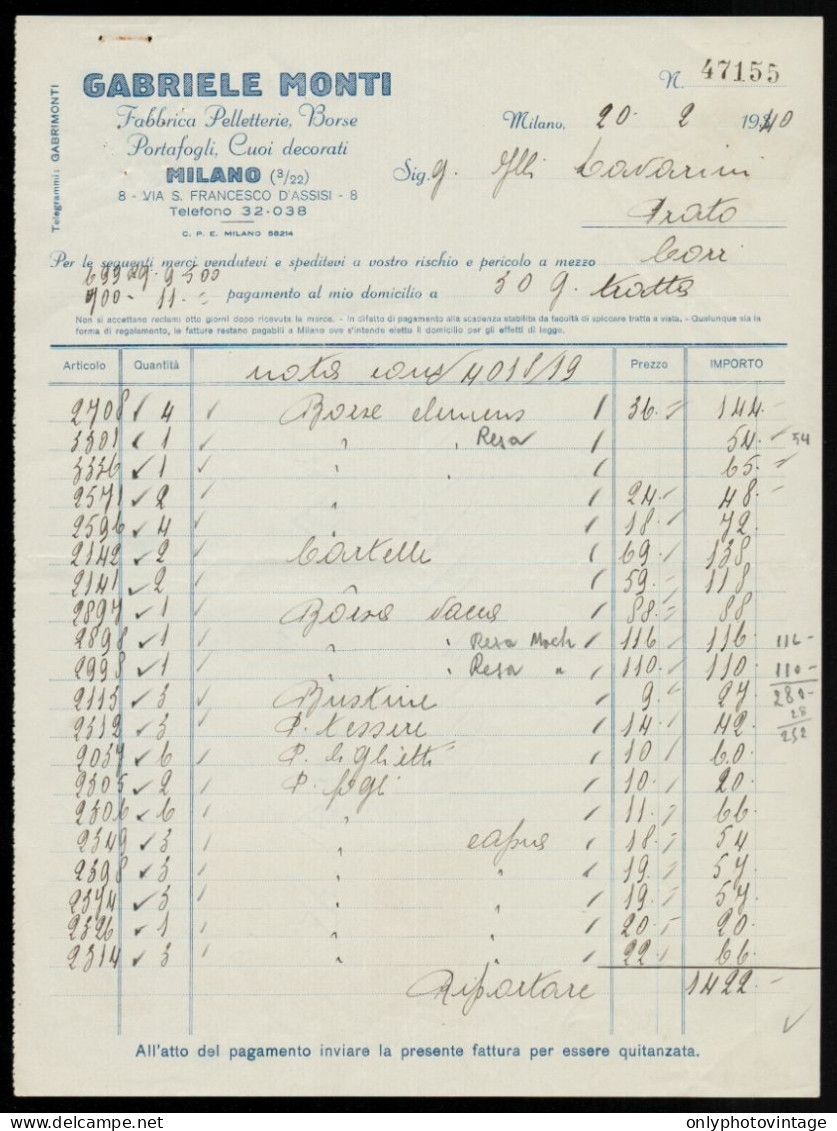 GABRIELE MONTI
Fabbrica Pelletterie, Borse
Portafogli, Cuoi decorati
MILANO (3/22)
8 - VIA S. FRANCESCO D'ASSISI - 8
Telefono 32-038
C. P. E. MILANO 58214
Telegrammi: GABRIMONTI
N. 47155
Milano, 20. 2 1940
Sig. Cavarini
Prato
Per le seguenti merci vendutevi e speditevi a vostro rischio e pericolo a mezzo Corr
pagamento al mio domicilio a 30 g. tratta
Non si accettano reclami otto giorni dopo ricevuta la merce. - In difetto di pagamento alla scadenza stabilita da facoltà di spiccare tratta a vista. - Qualunque sia la
forma di regolamento, le fatture restano pagabili a Milano ove s'intende eletto il domicilio per gli effetti di legge.
Articolo Quantità Prezzo IMPORTO
nota cons 4018/19
2708 4 Borse 36. 144.
3301 1 " " Resa 54. 54
3336 1 " 65.
2571 2 " 24. 48.
2596 4 " 18. 72.
2142 2 Cartelle 69. 138
2141 2 59. 118
2897 1 Borsa vacca 88. 88
2898 1 " " Resa Mach 116 116. 116-
2998 1 " " Resa " 110. 110 110-
280-
2113 3 Bustine 9. 27
28
2312 3 P. tessere 14. 42.
252
2037 6 P. biglietti 10 60.
2305 2 P. fogli 10. 20.
2306 6 " 11. 66.
2349 3 " 18. 54
2398 3 " " 19. 57
2374 3 " " 19. 57.
2326 1 " " 20. 20.
2314 3 " " 22. 66.
Riportare 1422.-
All'atto del pagamento inviare la presente fattura per essere quitanzata.
onlyphotovintage